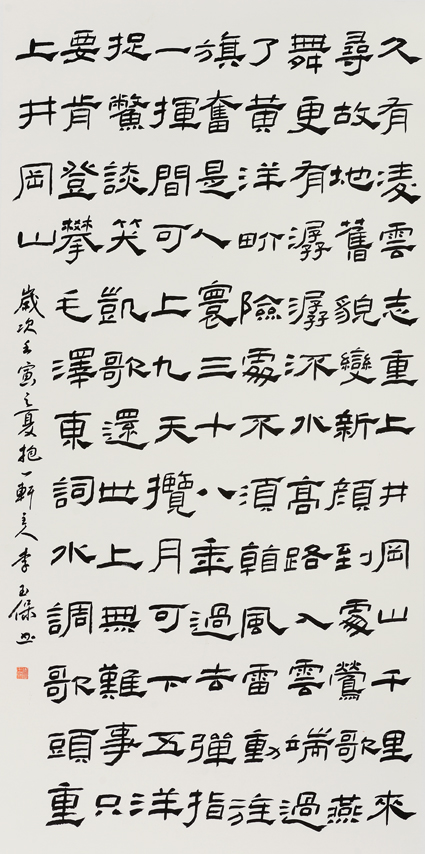 久有凌雲志重上井岡山千里來
尋故地舊貌變新顏到處鶯歌燕
舞更有潺潺流水高路入雲端過
了黃洋畍險處不須看風雷動旌
旗奮是人寰三十八秊過去彈指
一揮間可上九天攬月可下五洋
捉鱉談笑凱歌還世上無難事只
要肯登攀毛澤東詞水調歌頭重
上井岡山
歲次壬寅之夏抱一軒主人李玉保書